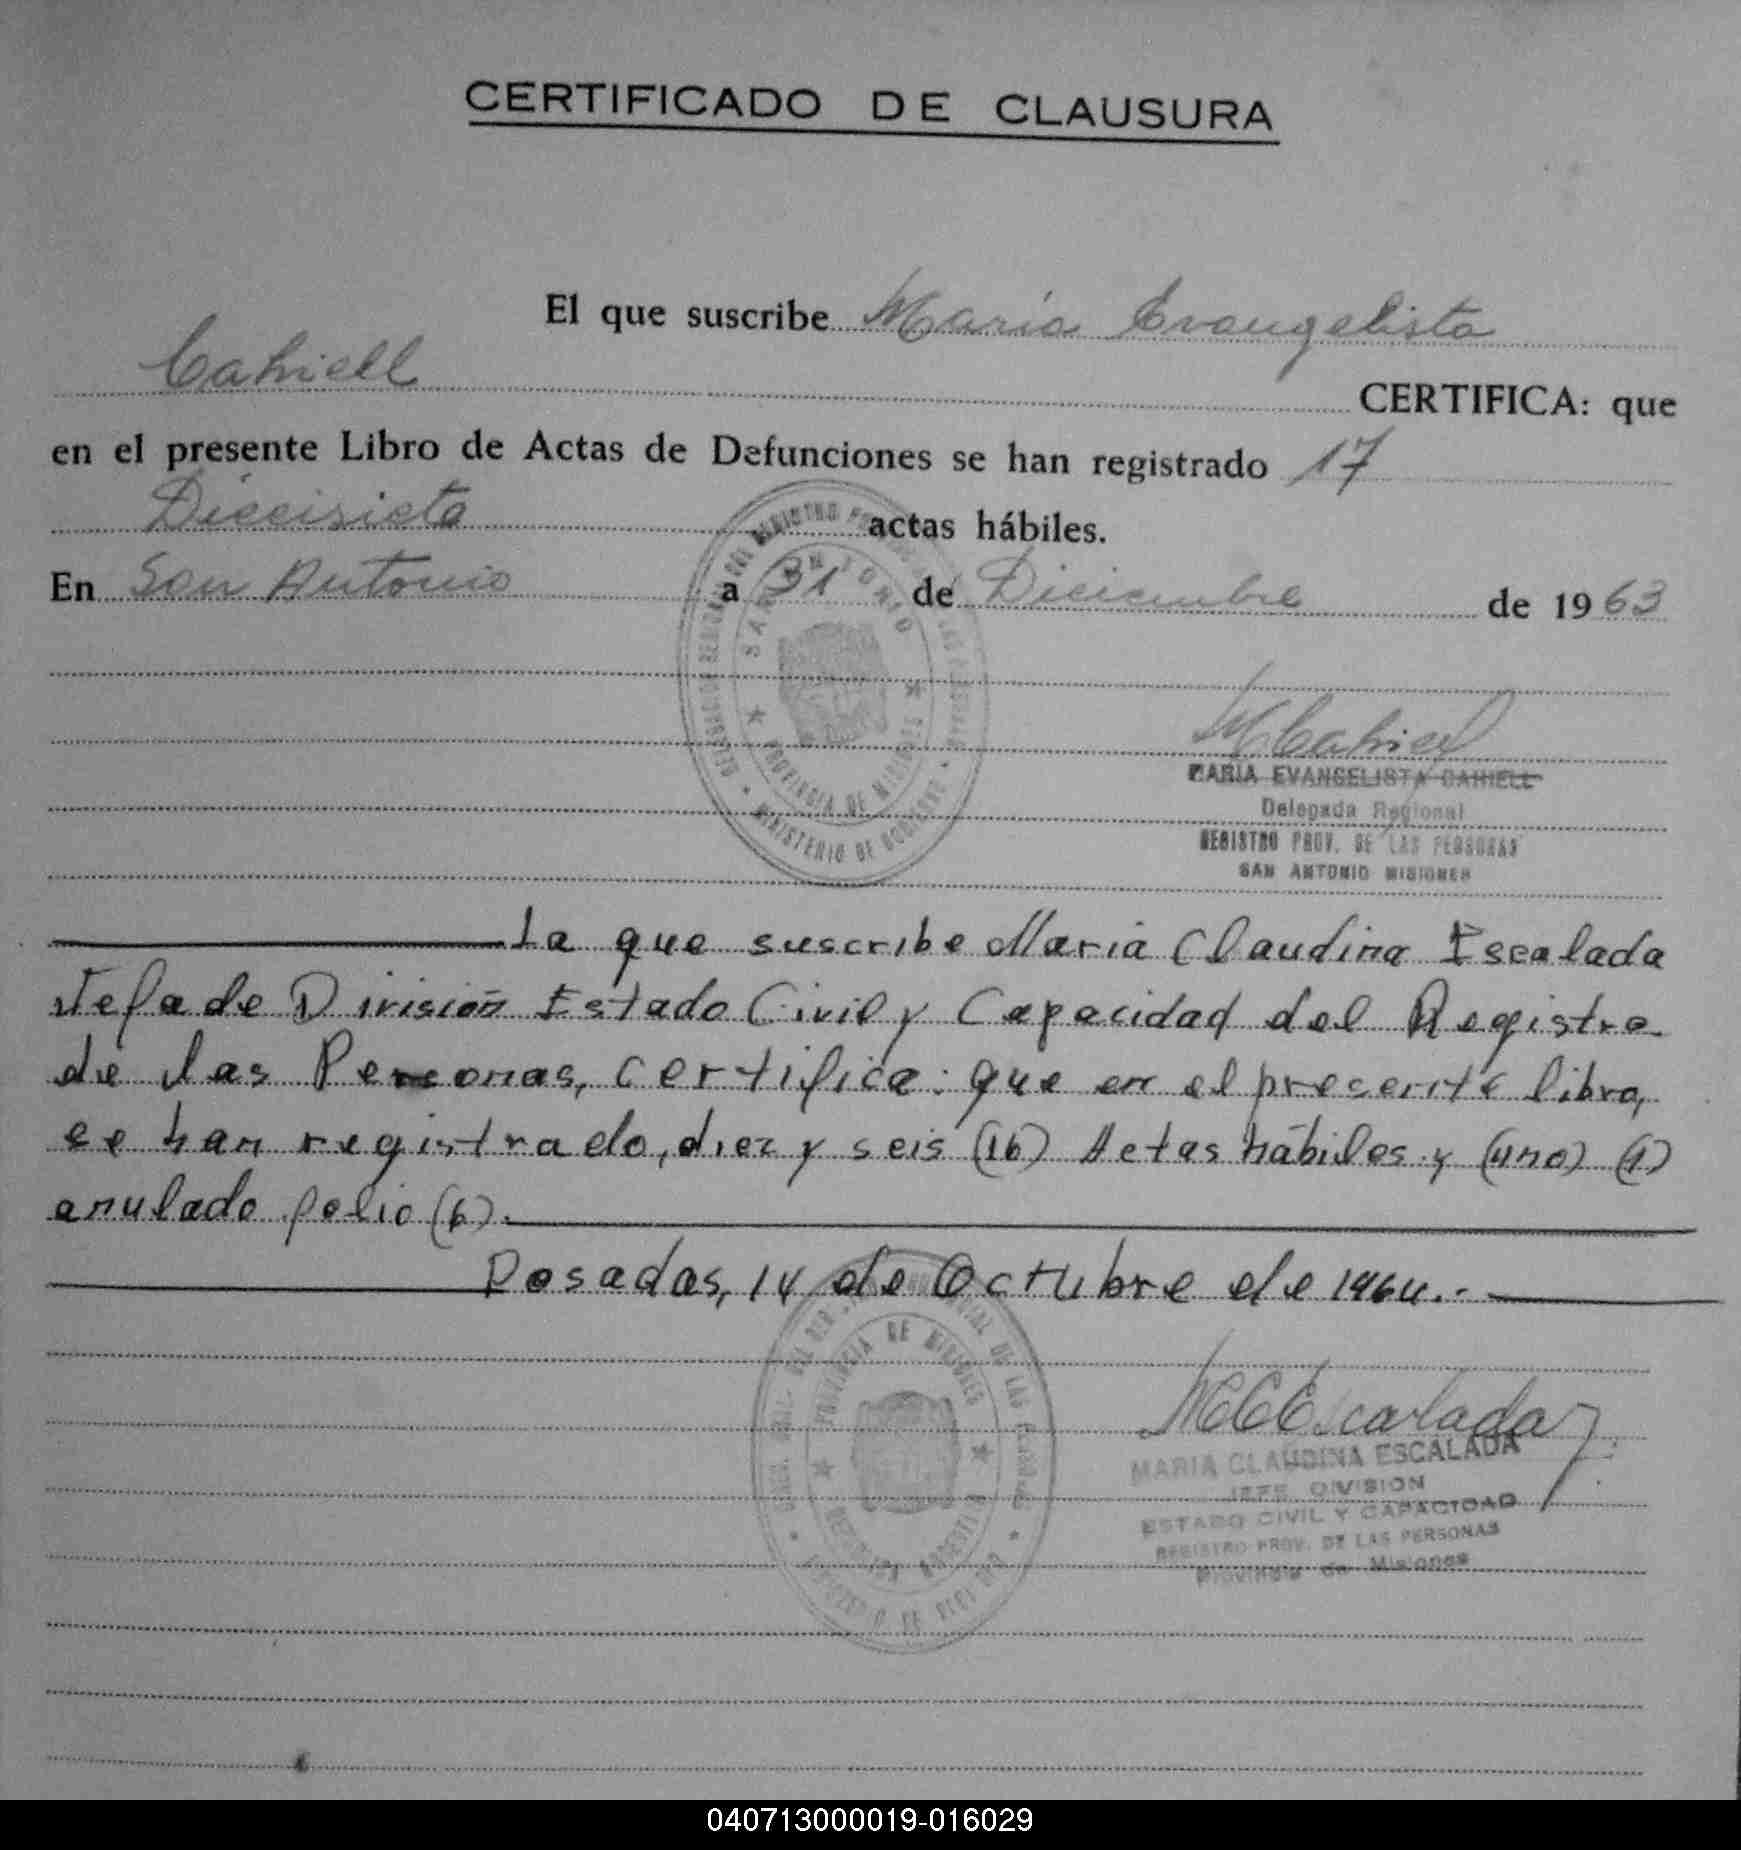 CERTIFICADO DE CLAUSURA
El que suscribe Maria Evangelista
Cahiell CERTIFICA: que
en el presente Libro de Actas de Defunciones se han registrado 17
Diecisiete actas hábiles.
En San Antonio a 31 de Diciembre de 1963
SAN ANTONIO
PROVINCIA DE MISIONES
MINISTERIO DE GOBIERNO
MCahiell
MARIA EVANGELISTA CAHIELL
Delegada Regional
REGISTRO PROV. DE LAS PERSONAS
SAN ANTONIO MISIONES
La que suscribe Maria Claudina Escalada
Jefa de División Estado Civil y Capacidad del Registro
de las Personas, certifica: que en el presente libro,
se han registrado, diez y seis (16) Actas hábiles y (uno) (1)
anulado folio (6).
Posadas, 14 de Octubre de 1964.-
PROVINCIA DE MISIONES
MCEscalada
MARIA CLAUDINA ESCALADA
JEFE DIVISION
ESTADO CIVIL Y CAPACIDAD
REGISTRO PROV. DE LAS PERSONAS
Provincia de Misiones
040713000019-016029